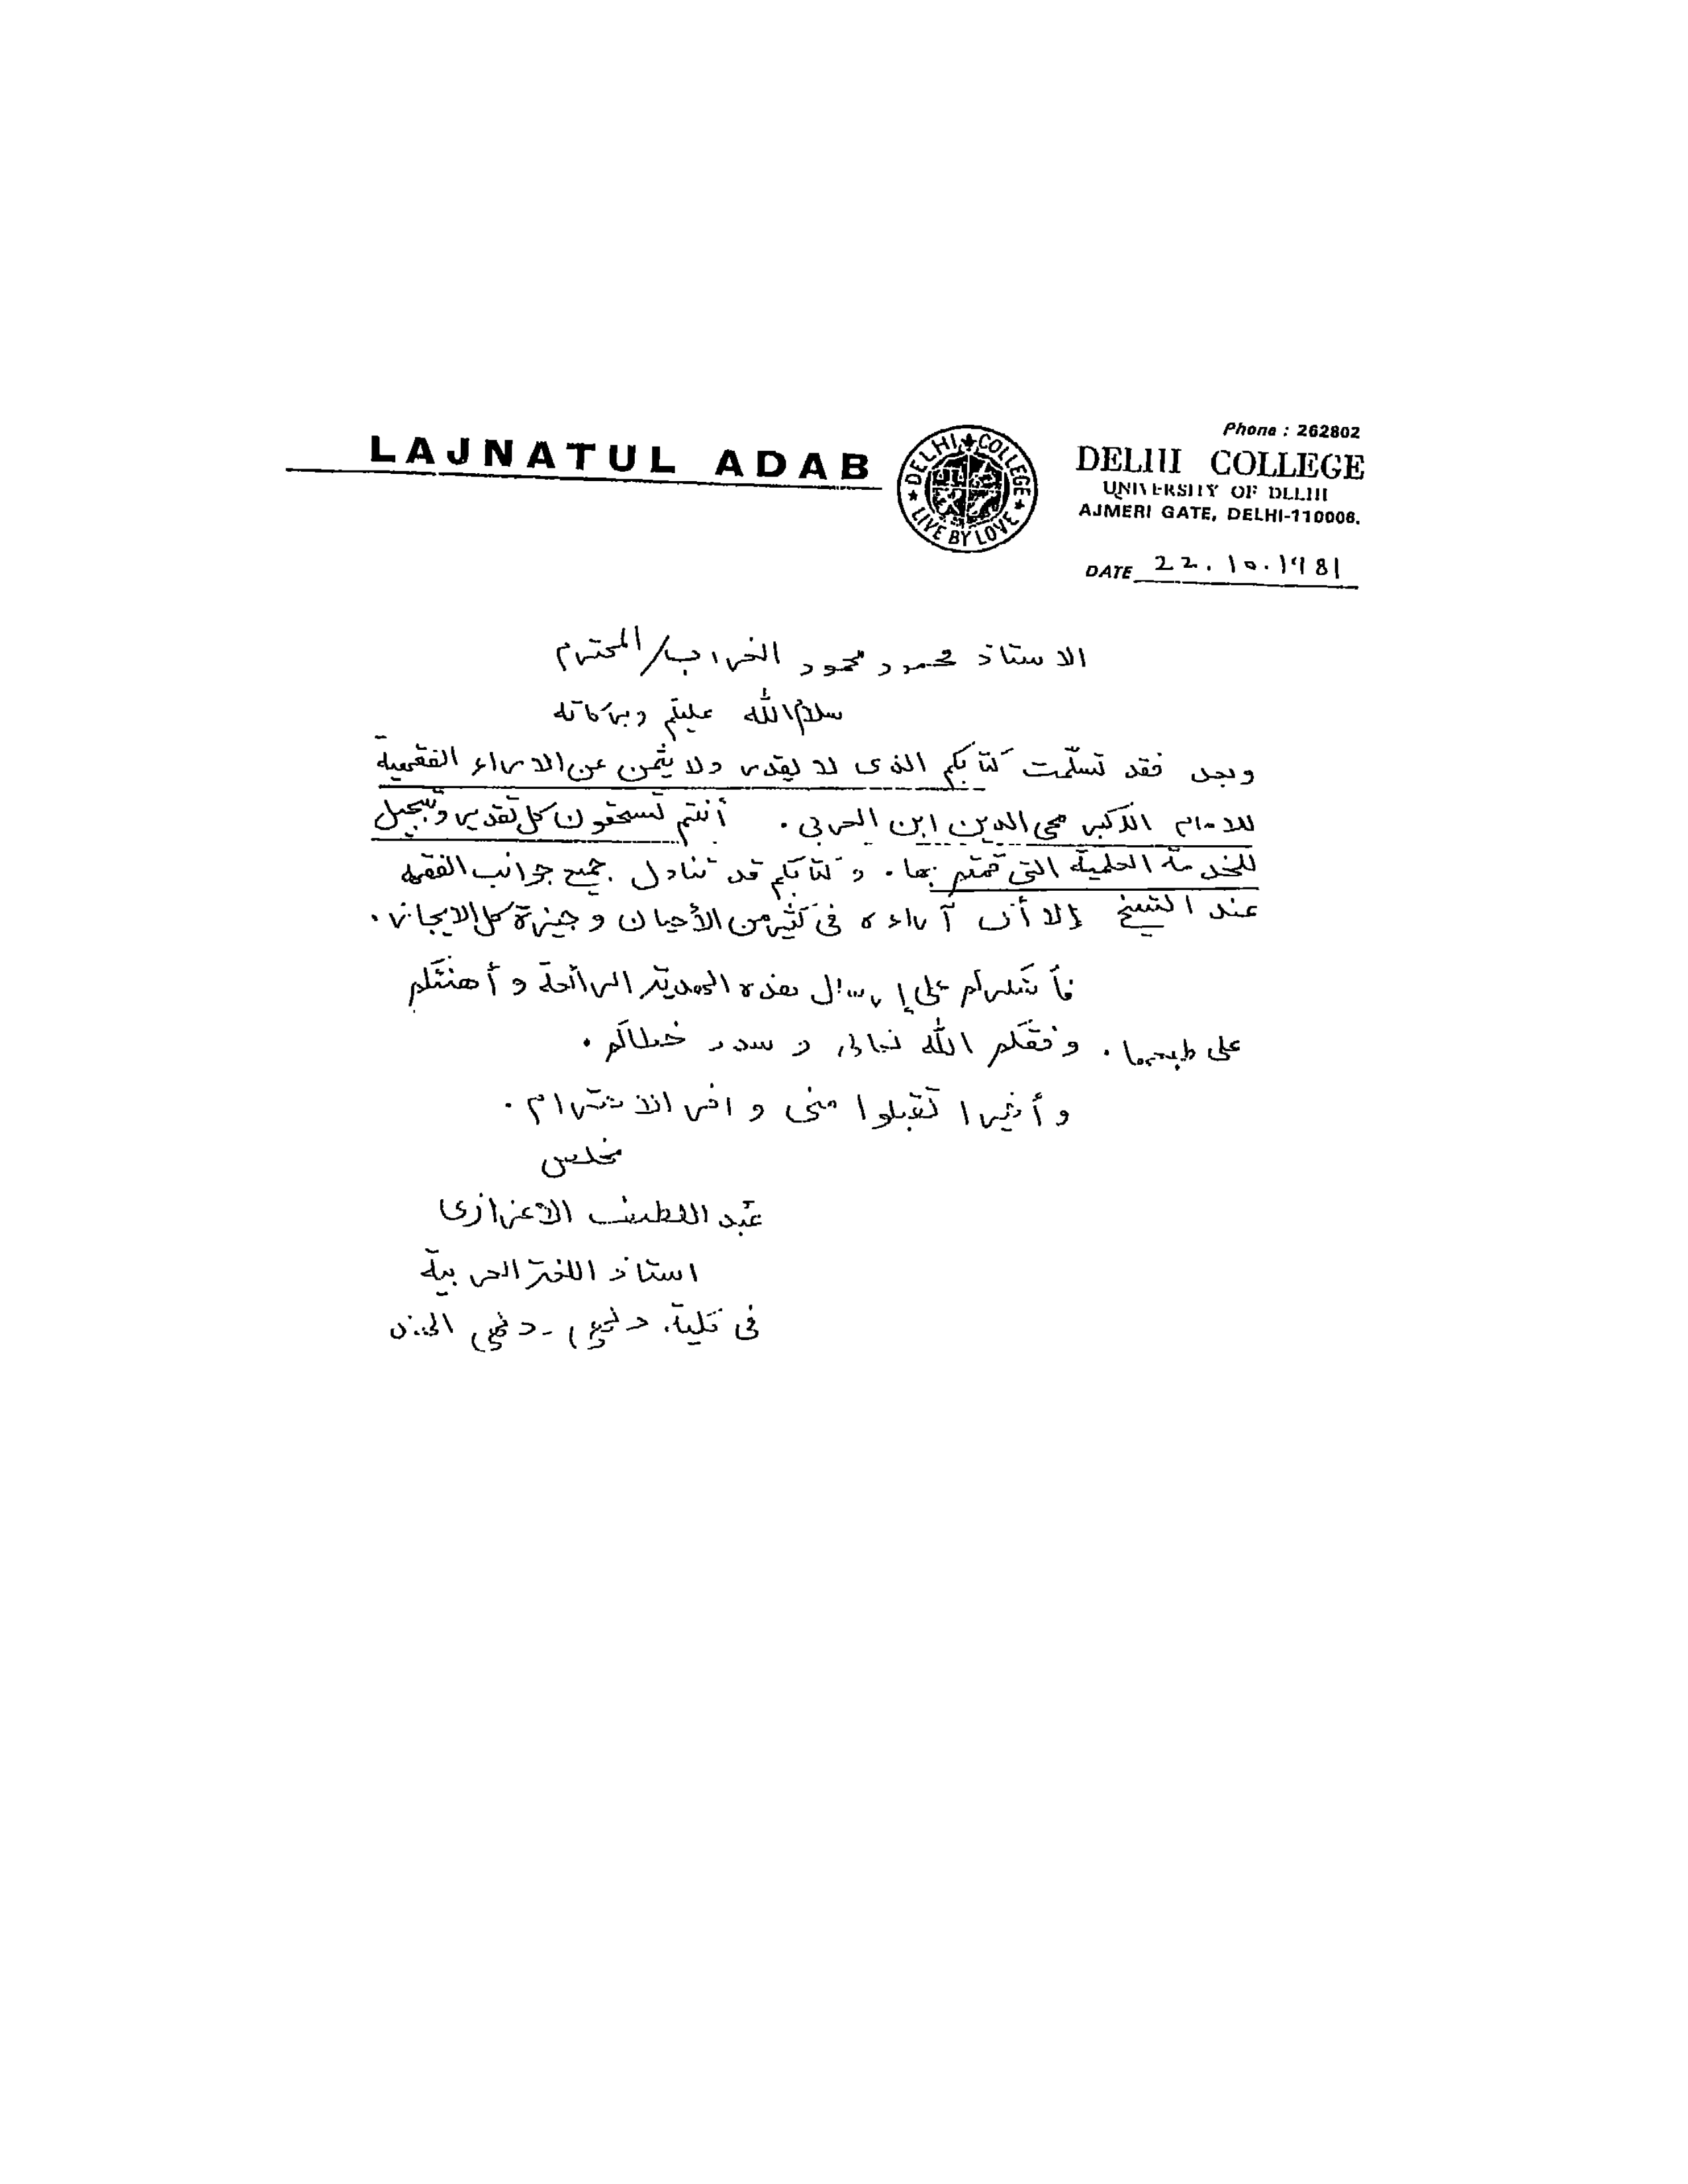 Phone : 262802
LAJNATUL ADAB
DELHI COLLEGE
LIVE BY LOVE
DELHI COLLEGE
UNIVERSITY OF DELHI
AJMERI GATE, DELHI-110006.
DATE 22.10.1981
الاستاذ محمود محمود الغراب/المحترم
سلام الله عليكم وبركاته
وبعد فقد تسلّمت كتابكم الذى لا يقدر ولا يثمن عن الاراء الفقهية
للامام الاكبر محى الدين ابن العربى . أنتم تستحقون كل تقدير وتبجيل
للخدمة العلمية التى قمتم بها . وكتابكم قد تناول جميع جوانب الفقه
عند الشيخ إلا أن آراءه فى كثير من الأحيان وجيزة كل الايجاز .
فأشكركم على إرسال هذه الهدية الرائعة و أهنئكم
على طبعها . وفقكم الله تعالى و سدد خطاكم .
و أخيرا تقبلوا منى وافر الاحترام .
مخلص
عبد اللطيف الاعزازى
استاذ اللغة العربية
فى كلية دلهى - دلهى الهند